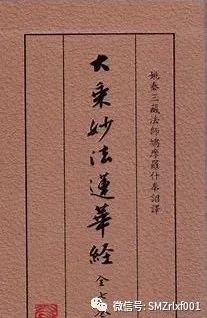 姚秦三藏法師鳩摩羅什奉詔譯
大乘妙法蓮華經
全七
微信号: SMZrlxf001